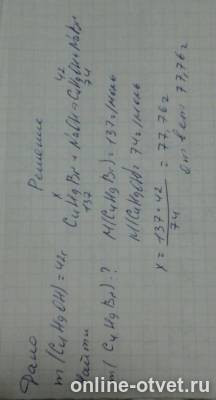 Дано
m(C4H9OH)=42г
Найти
m(C4H9Br)-?
Решение
x 42
C4H9Br + NaOH = C4H9OH + NaBr
137 74
M(C4H9Br) = 137 г/моль
M(C4H9OH) = 74 г/моль
x = 137 · 42 / 74 = 77,76 г
ответ 77,76 г
online-otvet.ru